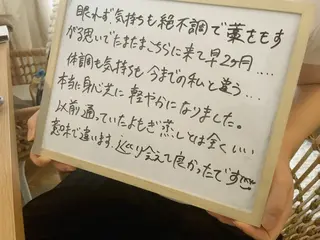 眠れず気持ちも絶不調で藁をもす
がる思いでたまたまこちらに来て早2ヶ月....
体調も気持ちも今までの私と違う...
本当に身心共に軽やかになりました。
以前通っていたよもぎ蒸しとは全くいい
意味で違います。巡り会えて良かったです